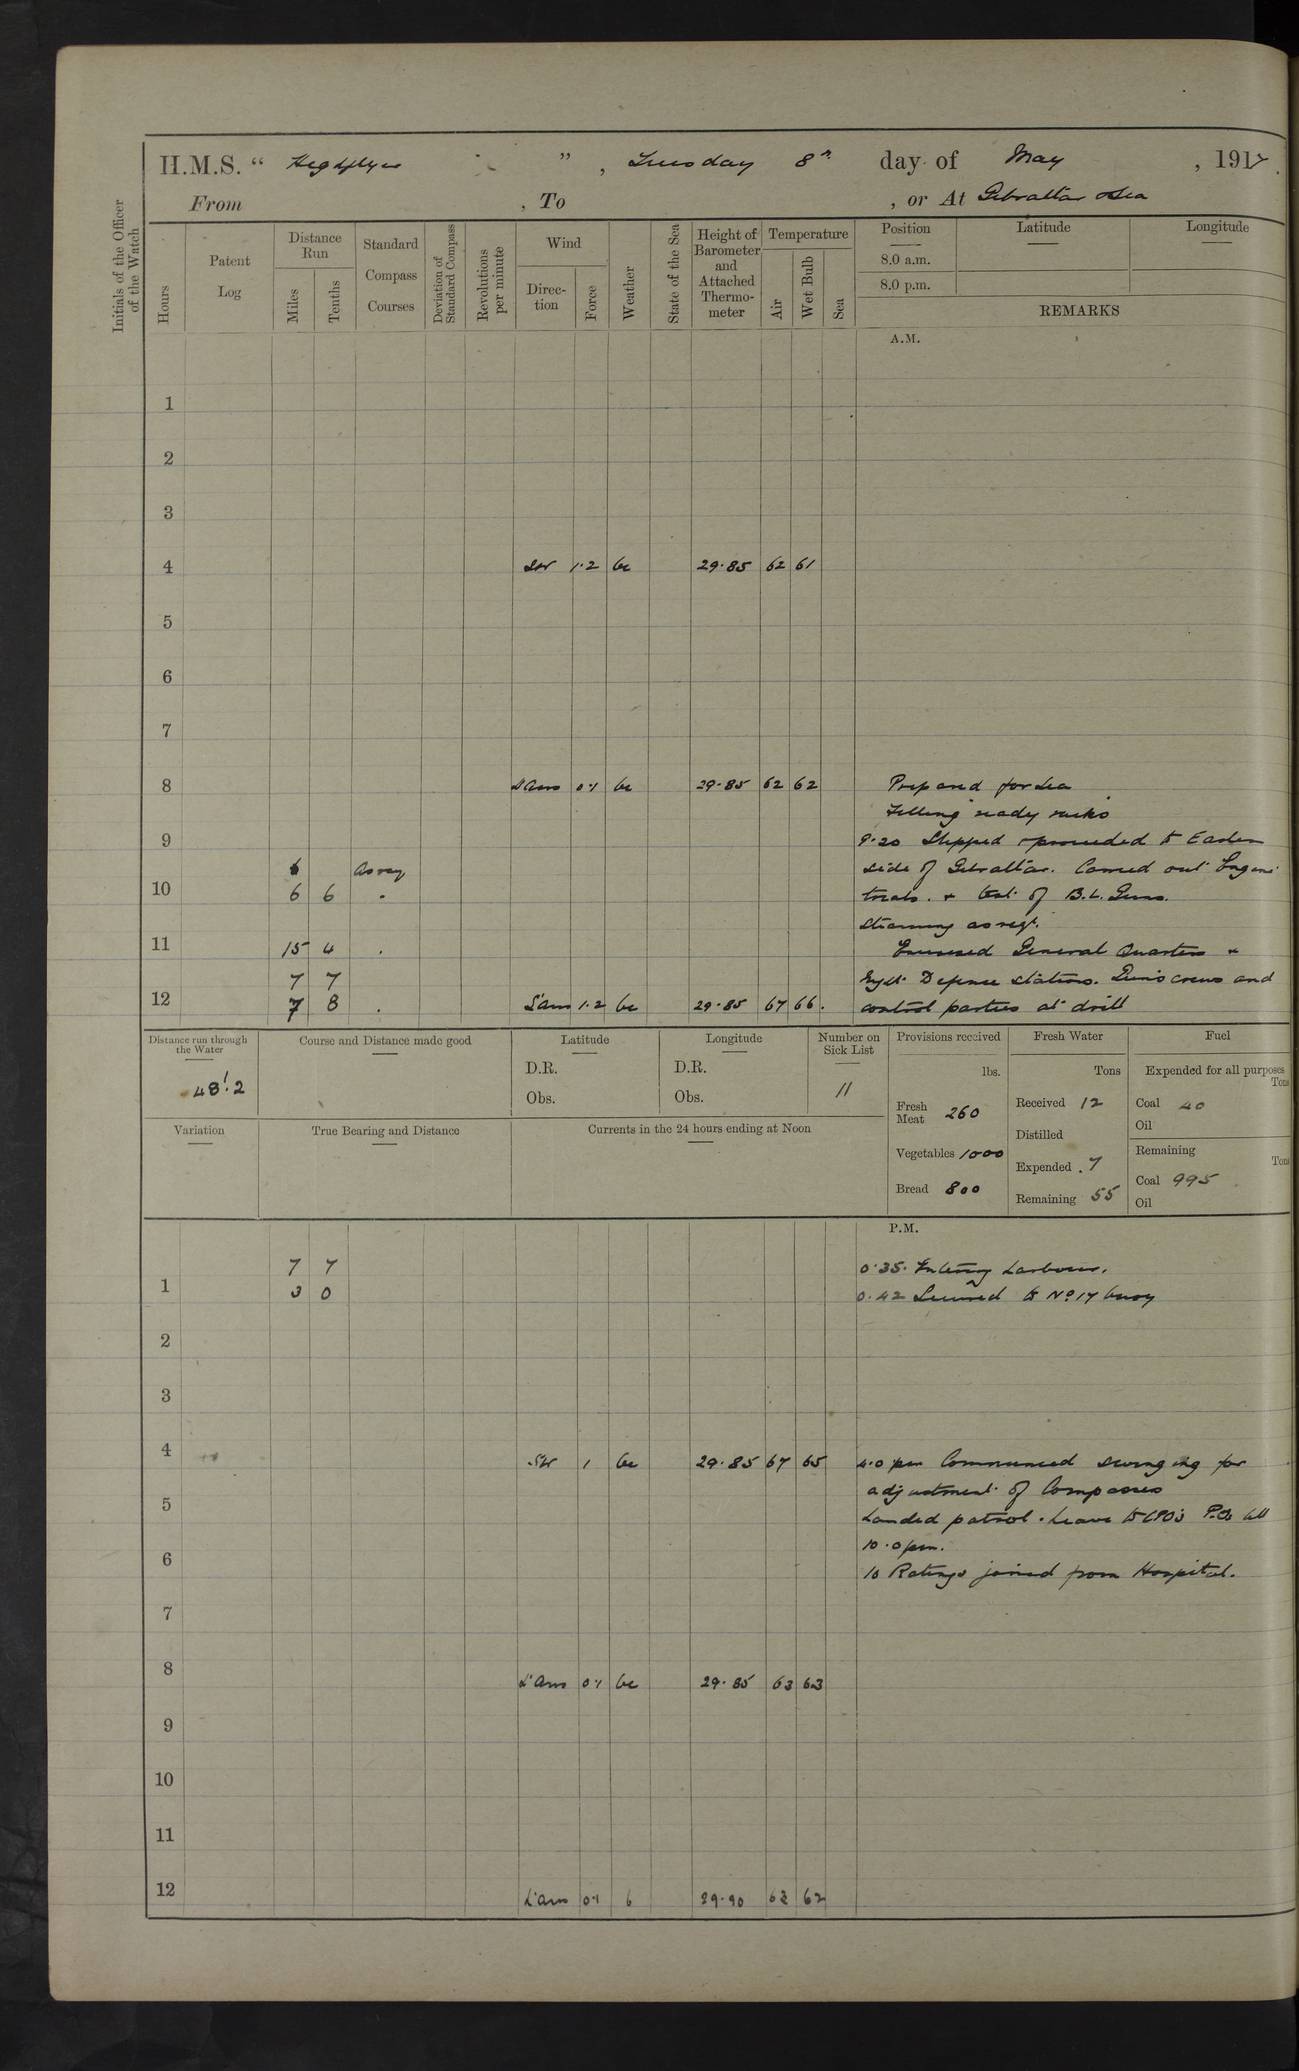 H.M.S. " Highflyer ", Tuesday 8th day of May, 1917.
From , To , or At Gibraltar & Sea
Initials of the Officer of the Watch
Hours
Patent Log
Distance Run
Miles
Tenths
Standard Compass Courses
Deviation of Standard Compass
Revolutions per minute
Wind
Direction
Force
Weather
State of the Sea
Height of Barometer and Attached Thermometer
Temperature
Air
Wet Bulb
Sea
Position
8.0 a.m.
8.0 p.m.
Latitude
Longitude
REMARKS
A.M.
1
2
3
4 SW 1·2 bc 29·85 62 61
5
6
7
8 L'airs 0·1 bc 29·85 62 62 Prepared for Sea
Filling ready racks
9 9·20 Slipped & proceeded to Eastern
6 As req side of Gibraltar. Carried out Engine
10 6 6 " trials. & test of B.L. Guns.
Steaming as reqt.
11 15 4 " Exercised General Quarters &
7 7 Night Defence stations. Guns crews and
12 7 8 " L'airs 1·2 bc 29·85 67 66 control parties at drill
Distance run through the Water
48'.2
Course and Distance made good
Latitude
D.R.
Obs.
Longitude
D.R.
Obs.
Number on Sick List
11
Provisions received
lbs.
Fresh Meat 260
Vegetables 1000
Bread 800
Fresh Water
Tons
Received 12
Distilled
Expended 7
Remaining 55
Fuel
Expended for all purposes
Tons
Coal 40
Oil
Remaining
Tons
Coal 995
Oil
Variation
True Bearing and Distance
Currents in the 24 hours ending at Noon
P.M.
7 7 0·35. Entering harbour.
1 3 0 0.42 Secured to No 17 buoy
2
3
4 SW 1 bc 29·85 67 65 4.0 pm Commenced swinging for
adjustment of Compasses
5 Landed patrol. Leave to CPO's P.Os till
10.0 pm.
6 10 Ratings joined from Hospital.
7
8 L'airs 0·1 bc 29·85 63 63
9
10
11
12 L'airs 0·1 b 29·90 62 62